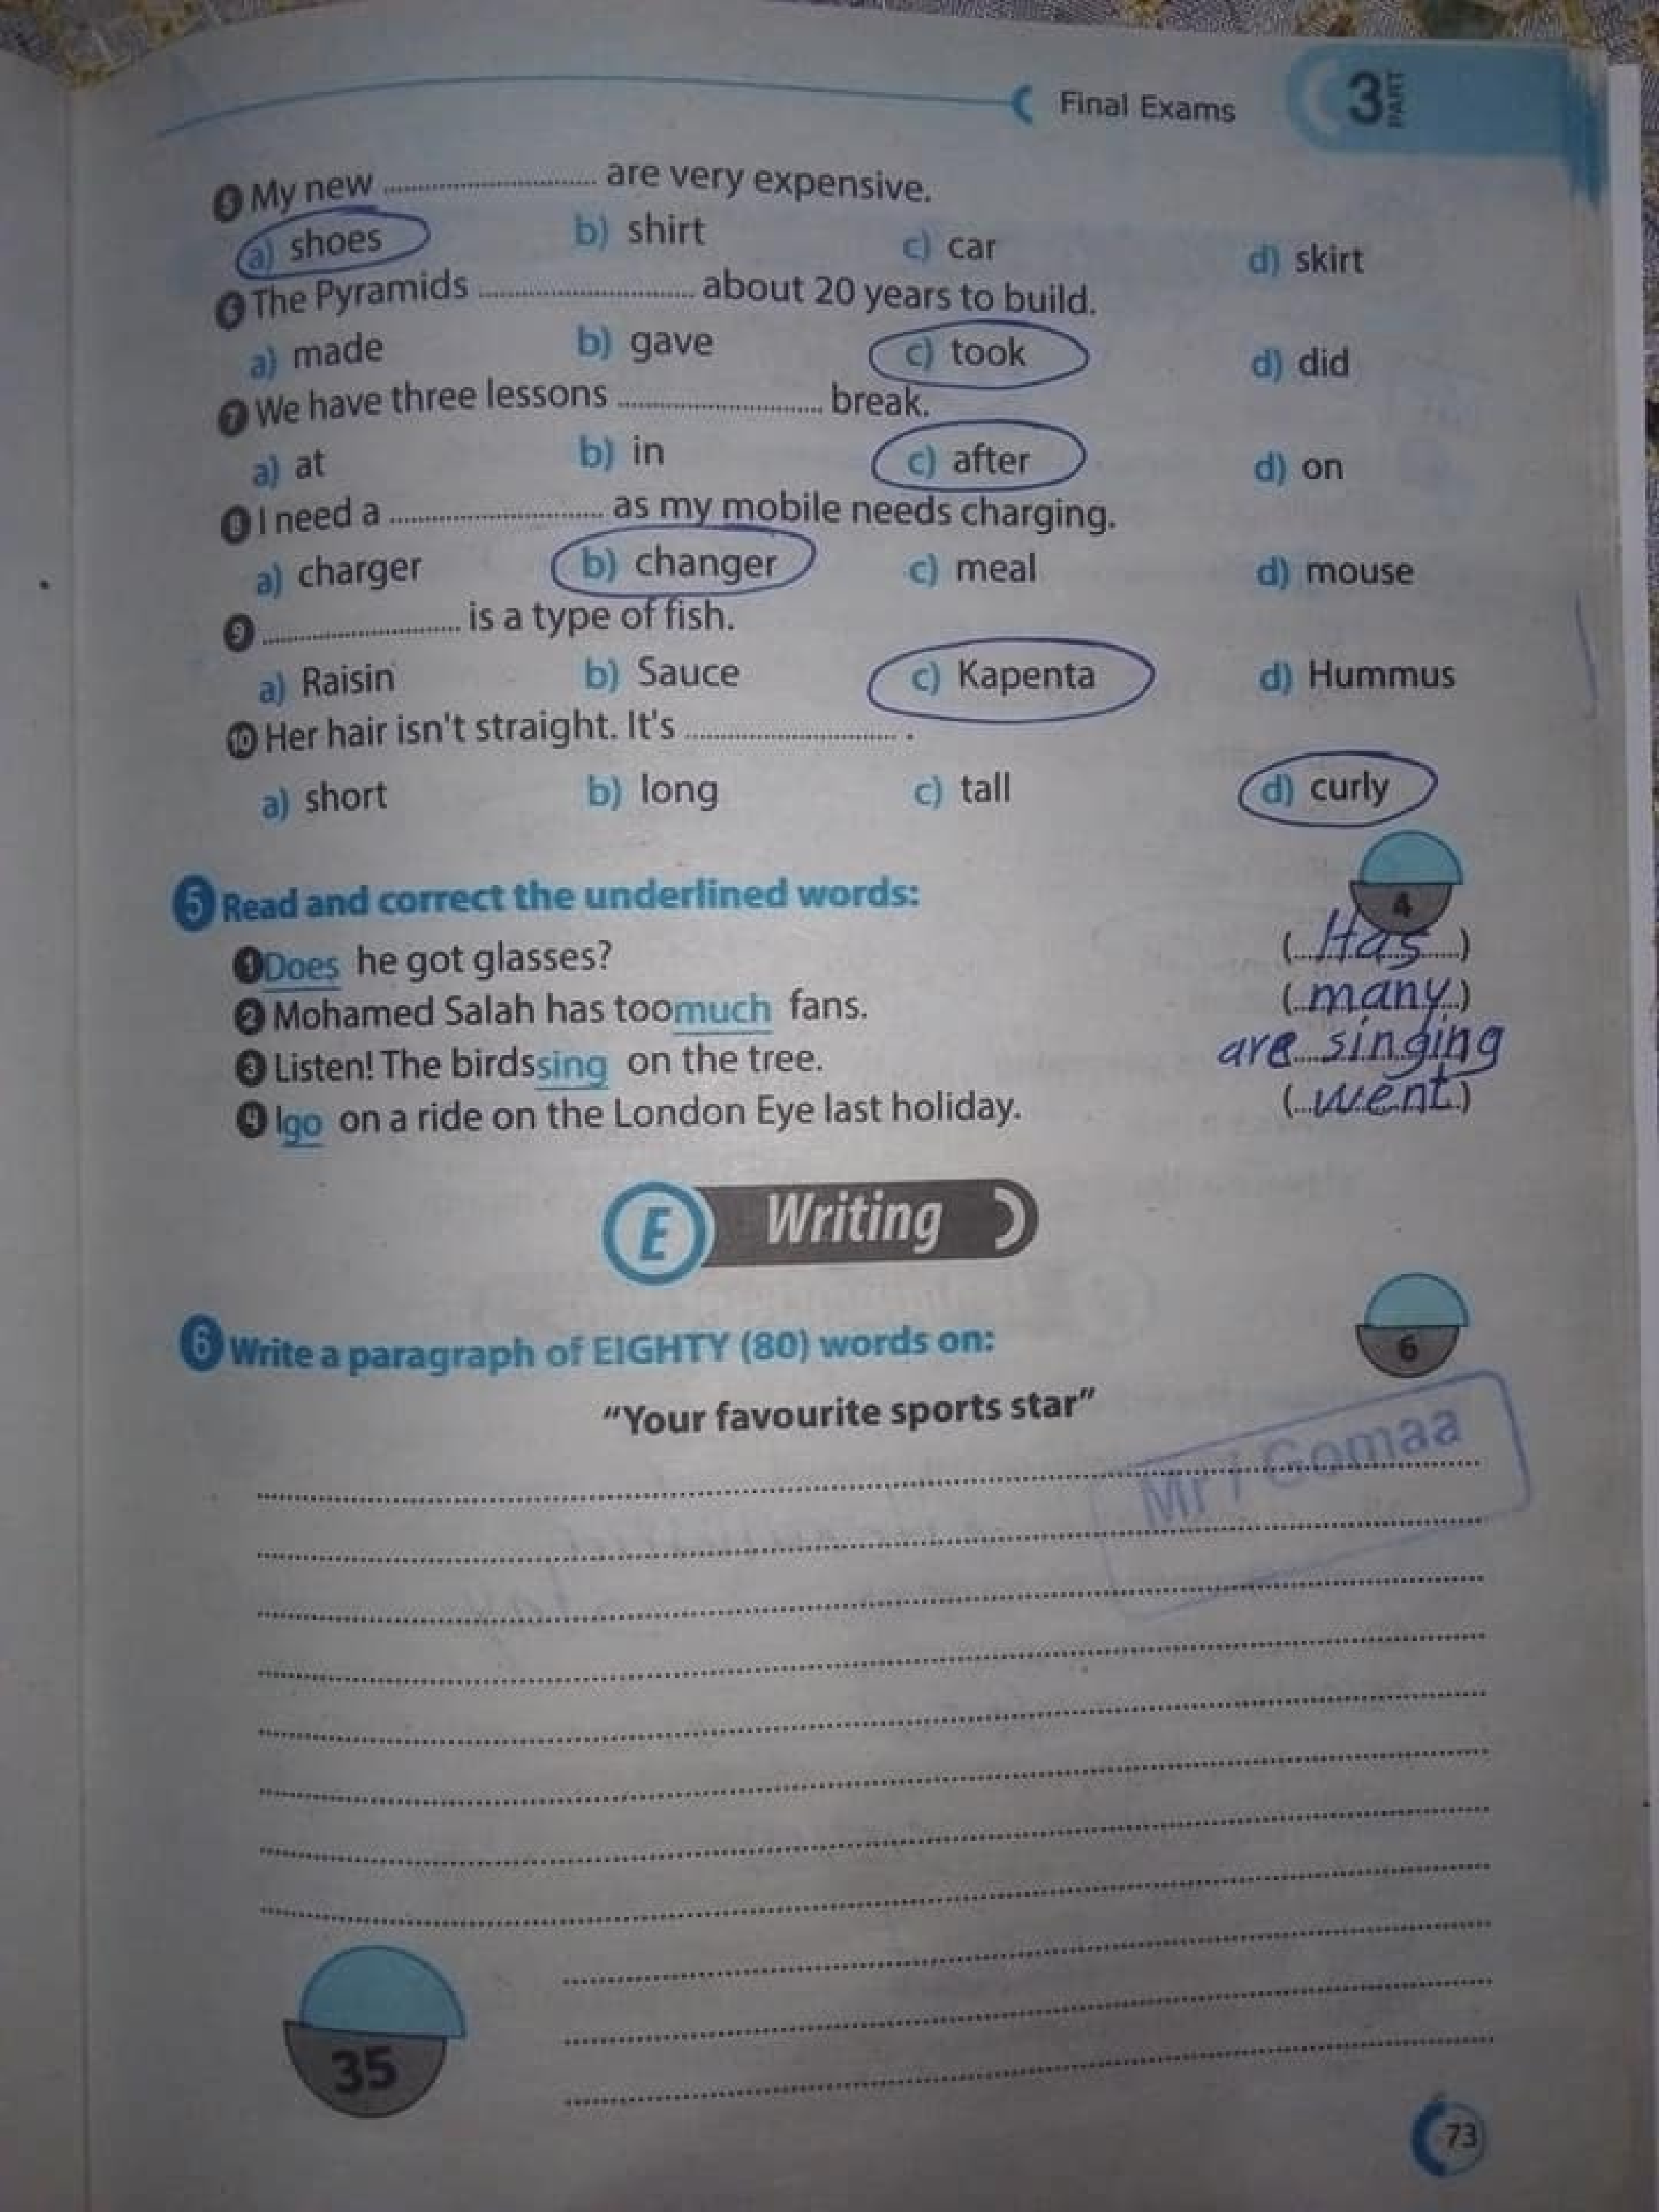 Final Exams
3 PART
5 My new .............................. are very expensive.
a) shoes b) shirt c) car d) skirt
6 The Pyramids .............................. about 20 years to build.
a) made b) gave c) took d) did
7 We have three lessons .............................. break.
a) at b) in c) after d) on
8 I need a .............................. as my mobile needs charging.
a) charger b) changer c) meal d) mouse
9 .............................. is a type of fish.
a) Raisin b) Sauce c) Kapenta d) Hummus
10 Her hair isn't straight. It's .............................. .
a) short b) long c) tall d) curly
4
5 Read and correct the underlined words:
1 Does he got glasses? (...Has...)
2 Mohamed Salah has toomuch fans. (...many...)
3 Listen! The birdssing on the tree. are singing
4 Igo on a ride on the London Eye last holiday. (...went...)
E Writing
6
6 Write a paragraph of EIGHTY (80) words on:
"Your favourite sports star"
Mr / Gomaa
35
73